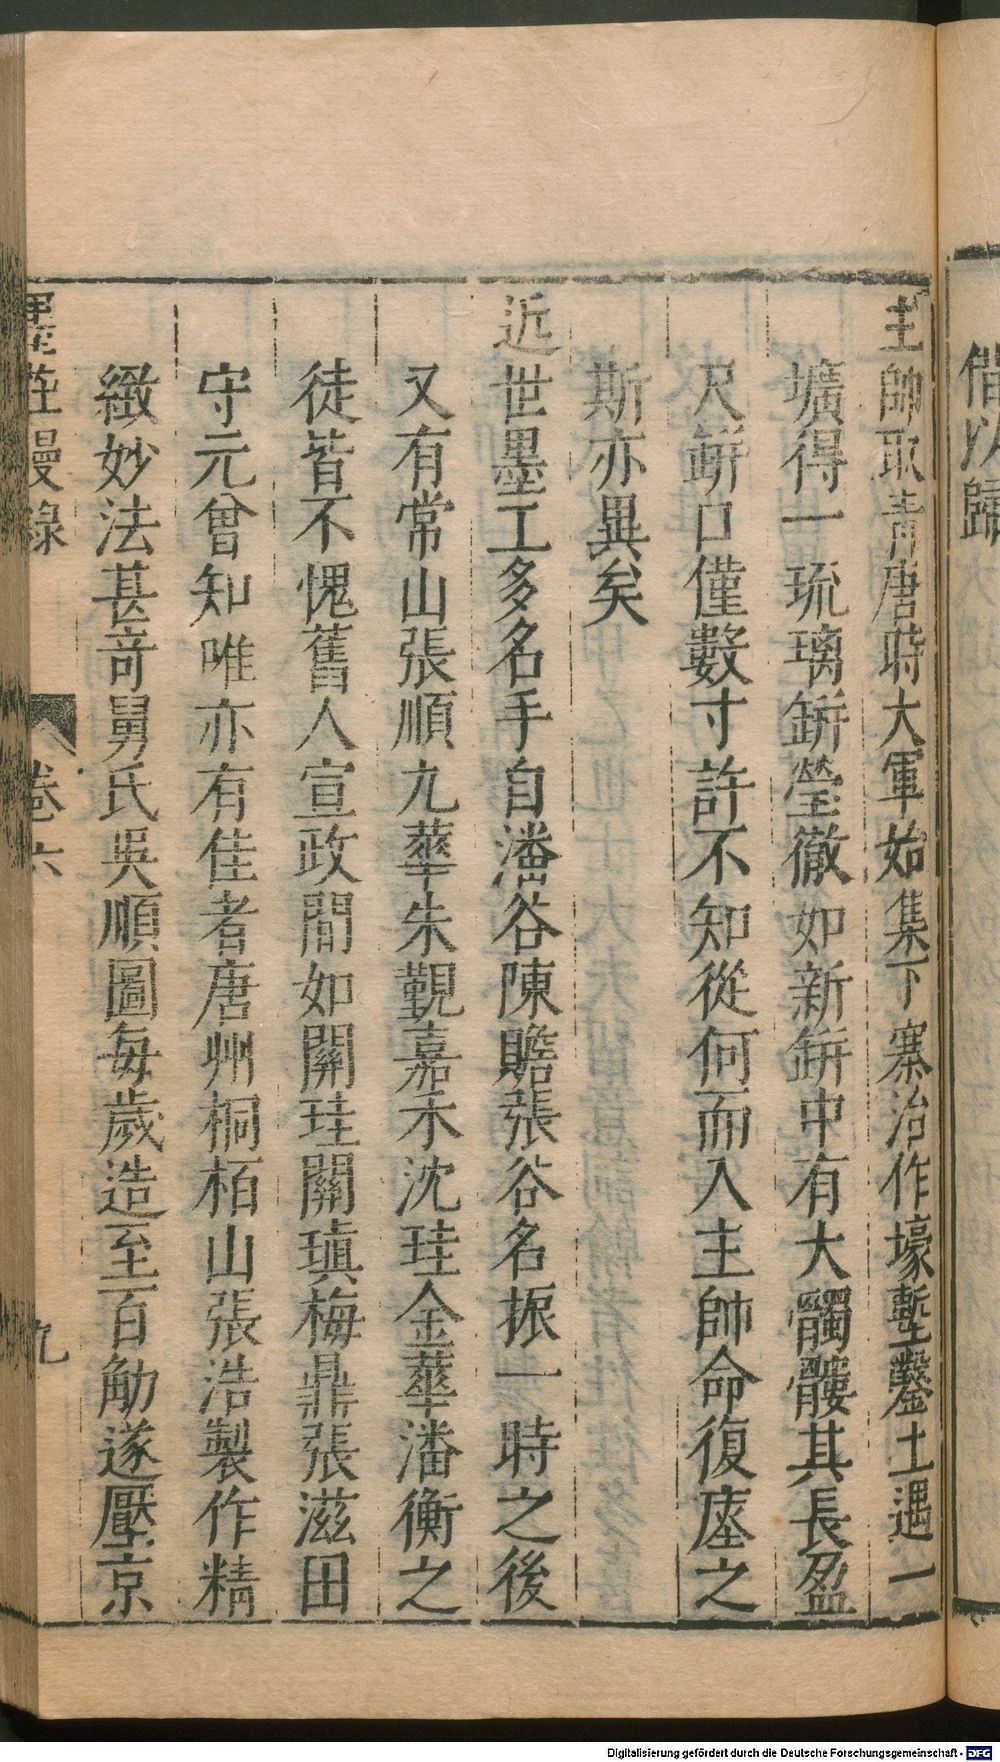 借以歸
主帥取青唐時大軍始集下寨治作壕塹鑿土遇一
壙得一琉璃缾瑩徹如新缾中有大髑髏其長盈
尺缾口僅數寸許不知從何而入主帥命復瘞之
斯亦異矣
近世墨工多名手自潘谷陳贍張谷名振一時之後
又有常山張順九華朱覲嘉禾沈珪金華潘衡之
徒皆不愧舊人宣政間如關珪關瑱梅鼎張滋田
守元曾知唯亦有佳者唐州桐栢山張浩製作精
緻妙法甚奇舅氏吳順圖每歲造至百觔遂壓京
墨莊漫錄
卷六
九
Digitalisierung gefördert durch die Deutsche Forschungsgemeinschaft - DFG